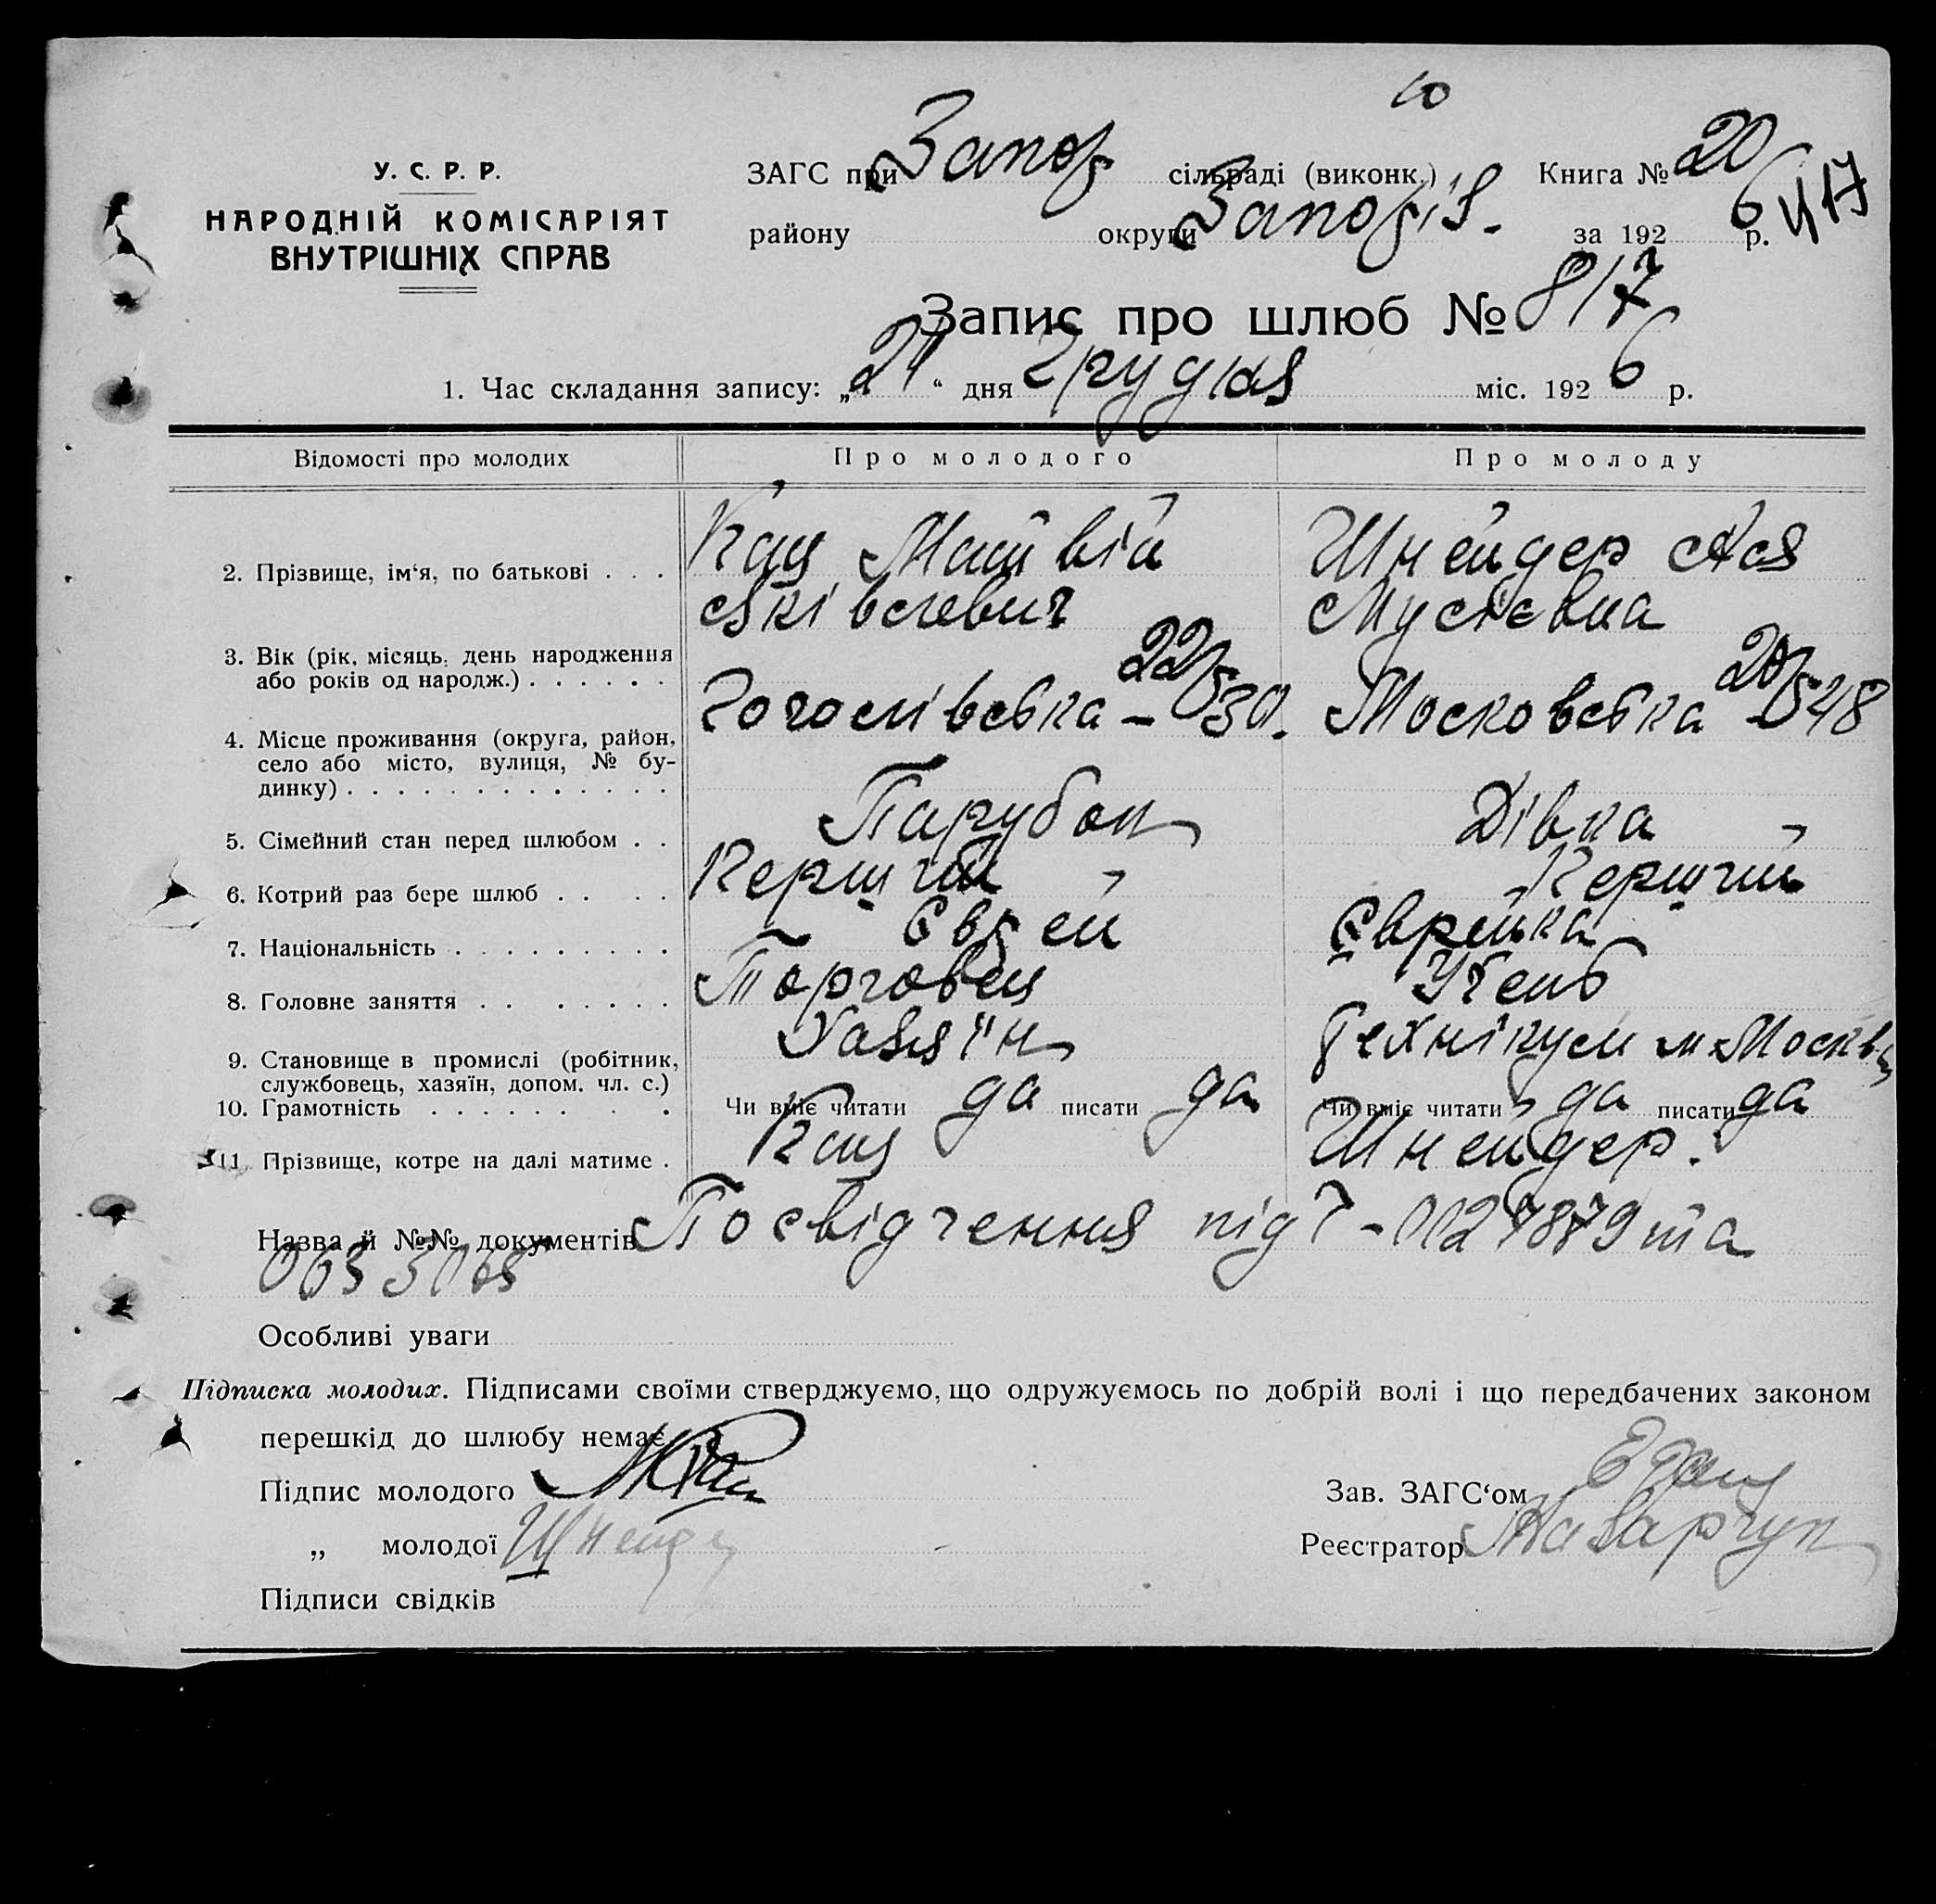 10
У. С. Р. Р.
НАРОДНІЙ КОМІСАРІЯТ
ВНУТРІШНІХ СПРАВ
ЗАГС при Запор сільраді (виконк.) Книга № 20
району округи Запоріз. за 1926 р. 417
Запис про шлюб № 817
1. Час складання запису: „21“ дня грудня міс. 1926 р.
Відомості про молодих Про молодого Про молоду
2. Прізвище, ім‘я, по батькові Кац Матвій Шнейдер Ася
Яківлевич Мусієвна
3. Вік (рік, місяць, день народження або років од народж.) 22 20
4. Місце проживання (округа, район, село або місто, вулиця, № будинку) Гоголівська – 30. Московська 48
5. Сімейний стан перед шлюбом Парубок Дівка
6. Котрий раз бере шлюб Перший Перший
7. Національність Єврей Єврейка
8. Головне заняття Торговец Учень
9. Становище в промислі (робітник, службовець, хазяїн, допом. чл. с.) Хазяїн Технікум м. Москви
10. Грамотність Чи вміє читати да писати да Чи вміє читати да писати да
11 Прізвище, котре на далі матиме Кац Шнейдер.
Назва й №№ документів Посвідчення під та
Особливі уваги
Підписка молодих. Підписами своїми стверджуємо, що одружуємось по добрій волі і що передбачених законом
перешкід до шлюбу немає.
Підпис молодого МКац Зав. ЗАГС‘ом
„ молодої Шнейдер Реєстратор
Підписи свідків